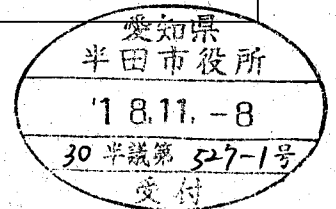 愛知県
半田市役所
'18.11.-8
30半議第527-1号
受付